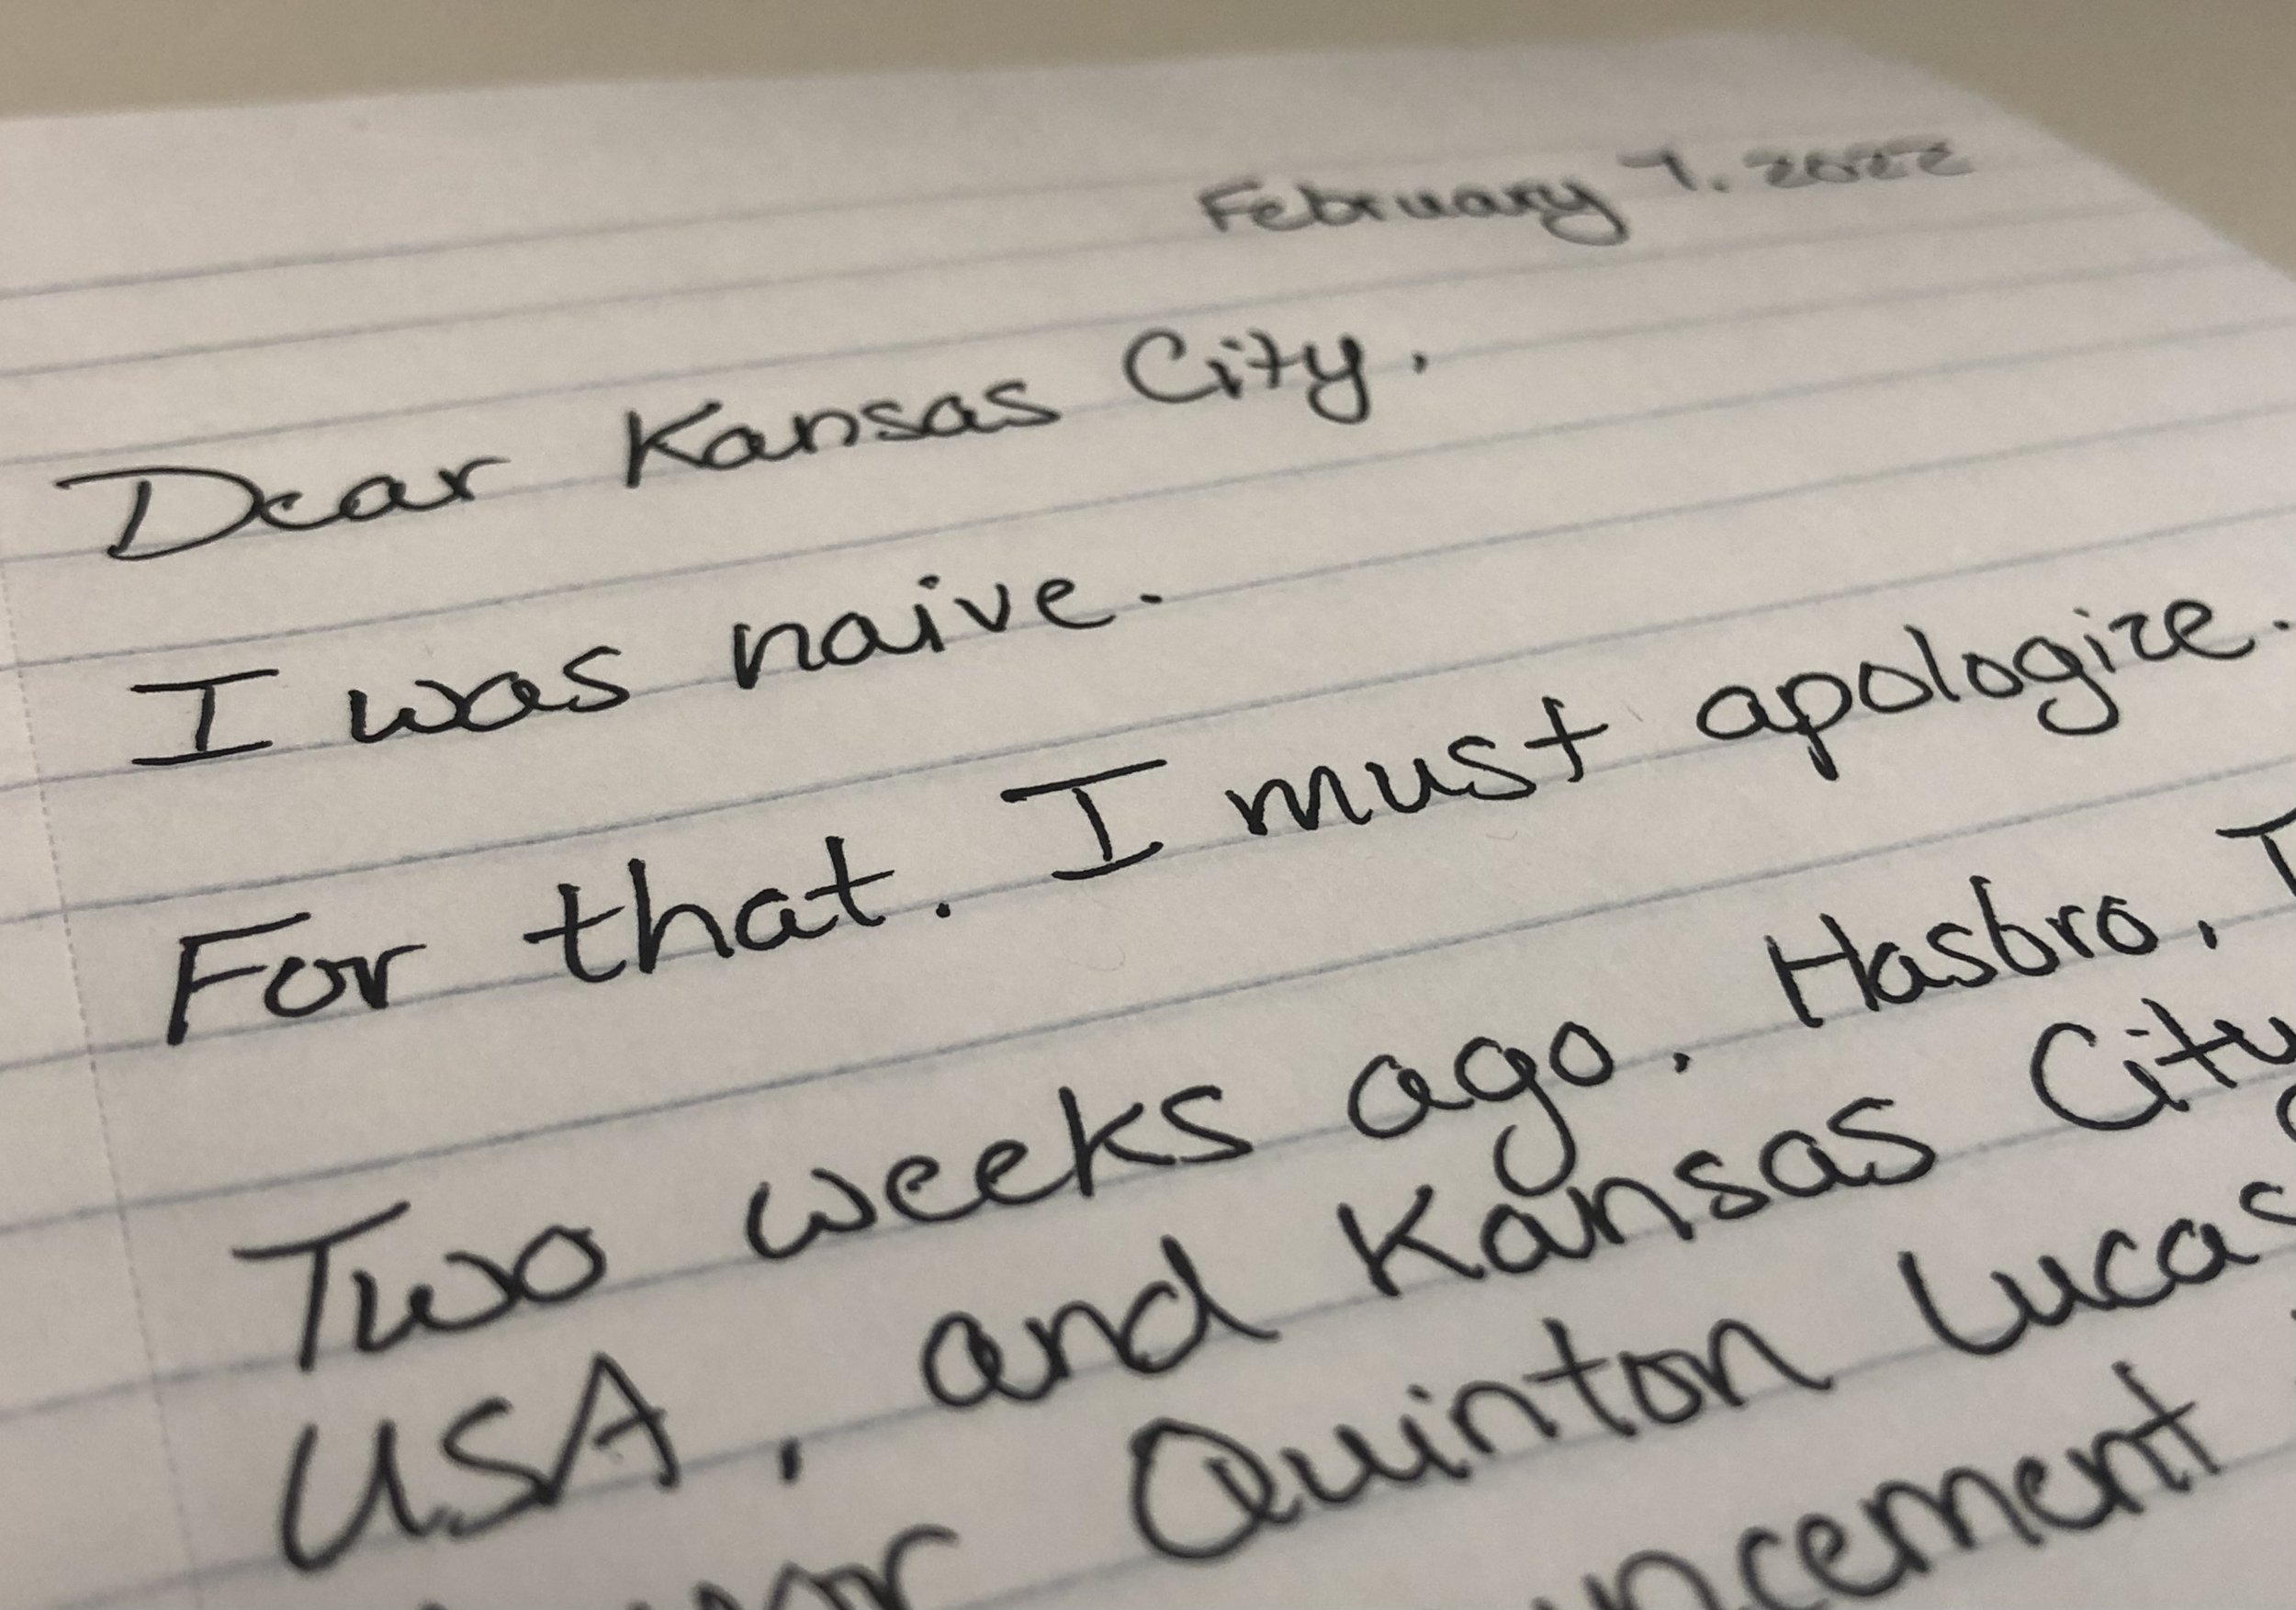 February 7, 2022
Dear Kansas City,
I was naive.
For that, I must apologize.
Two weeks ago, Hasbro,
USA, and Kansas City
Quinton Lucas